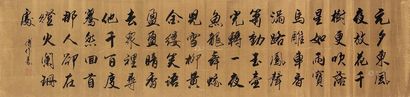 元夕東風
夜放花千
樹更吹落
星如雨寶
馬雕車香
滿路鳳簫
聲動玉壺
光轉一夜
魚龍舞蛾
兒雪柳黃
金縷笑語
盈盈暗香
去眾裡尋
他千百度
驀然回首
那人卻在
燈火闌珊
處